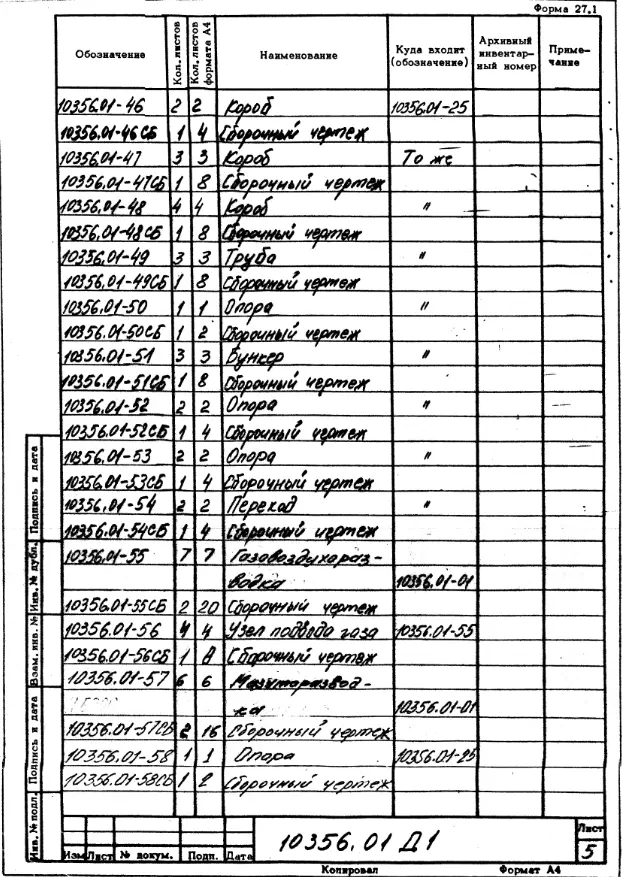 Форма 27.1
Обозначение Кол. листов Кол. листов формата А4 Наименование Куда входит (обозначение) Архивный инвентар-ный номер Приме-чание
10356.01-46 2 2 Короб 10356.01-25
10356.01-46СБ 1 4 Сборочный чертеж
10356.01-47 3 3 Короб То же
10356.01-47СБ 1 8 Сборочный чертеж
10356.01-48 4 4 Короб "
10356.01-48СБ 1 8 Сборочный чертеж
10356.01-49 3 3 Труба "
10356.01-49СБ 1 8 Сборочный чертеж
10356.01-50 1 1 Опора "
10356.01-50СБ 1 2 Сборочный чертеж
10356.01-51 3 3 Бункер "
10356.01-51СБ 1 8 Сборочный чертеж
10356.01-52 2 2 Опора "
10356.01-52СБ 1 4 Сборочный чертеж
10356.01-53 2 2 Опора "
10356.01-53СБ 1 4 Сборочный чертеж
10356.01-54 2 2 Переход "
10356.01-54СБ 1 4 Сборочный чертеж
10356.01-55 7 7 Газовоздухораз-
водка 10356.01-01
10356.01-55СБ 2 20 Сборочный чертеж
10356.01-56 4 4 Узел подвода газа 10356.01-55
10356.01-56СБ 1 Сборочный чертеж
10356.01-57 6 6 Мазуторазвод-
ка 10356.01-01
10356.01-57СБ 2 16 Сборочный чертеж
10356.01-58 1 1 Опора 10356.01-25
10356.01-58СБ 1 2 Сборочный чертеж
Инв. № подл. Подпись и дата Взам. инв. № Инв. № дубл. Подпись и дата
Изм Лист № докум. Подп. Дата
10356.01 Д1
Лист
5
Копировал Формат А4